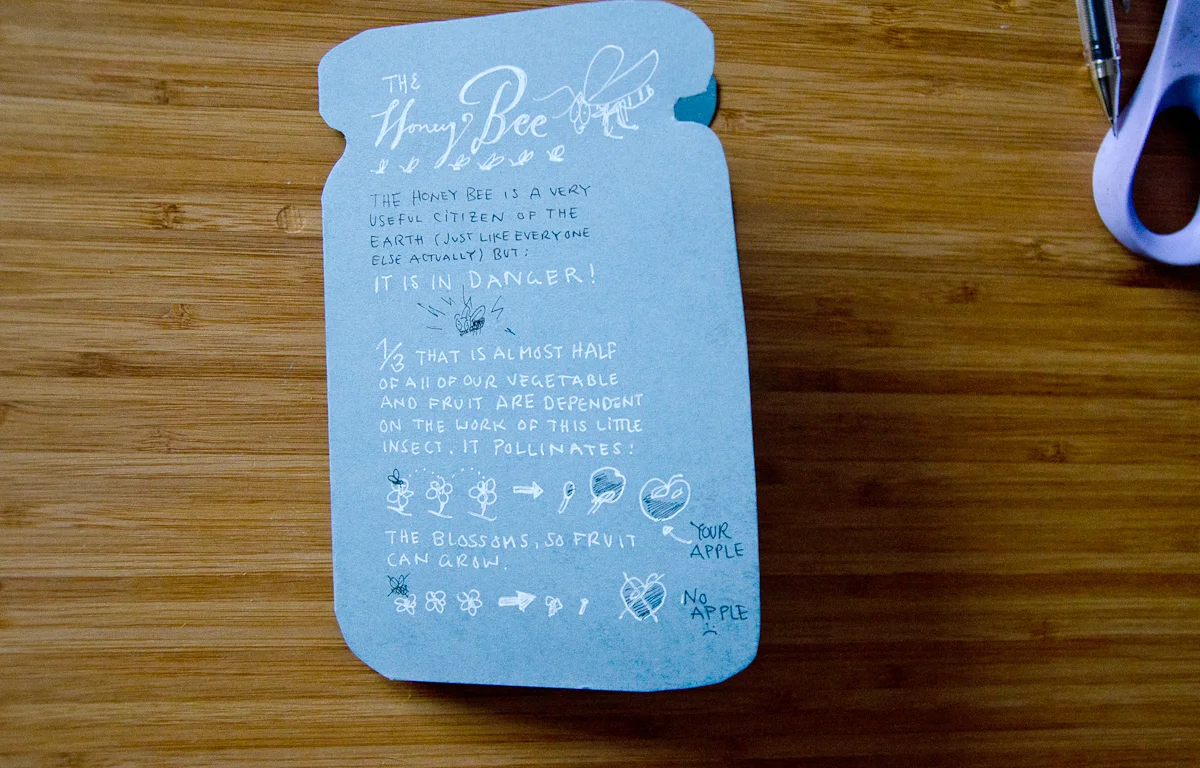 THE
Honey Bee
THE HONEY BEE IS A VERY
USEFUL CITIZEN OF THE
EARTH (JUST LIKE EVERYONE
ELSE ACTUALLY) BUT:
IT IS IN DANGER!
1/3 THAT IS ALMOST HALF
OF All OF OUR VEGETABLE
AND FRUIT ARE DEPENDENT
ON THE WORK OF THIS LITTLE
INSECT. IT POLLINATES:
YOUR
APPLE
THE BLOSSOMS, SO FRUIT
CAN GROW.
NO
APPLE